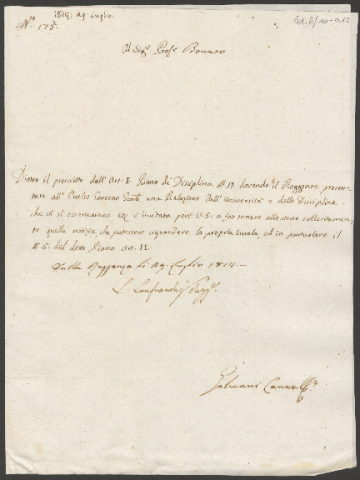 1814: 29. Luglio.
N.° 175.
Al Sig.r Prof.r Bonnaro
Dietro il prescritto dall'Art. I. Piano di Disciplina N.° 13 dovendo il Reggente presen-
tare all' Governo una Relazione dell'Università e della Disciplina
che vi si osservarono è invitata perciò V.S. a far tenere alla stessa sollecitamen-
te quelle notizie, che possono riguardare la propria scuola, ed in particolare il
N.° 6. del Piano Art. II
Dalla Reggenza li 29. Luglio 1814.
L. Lanfranchi Regg.e
Galvani Canc.re